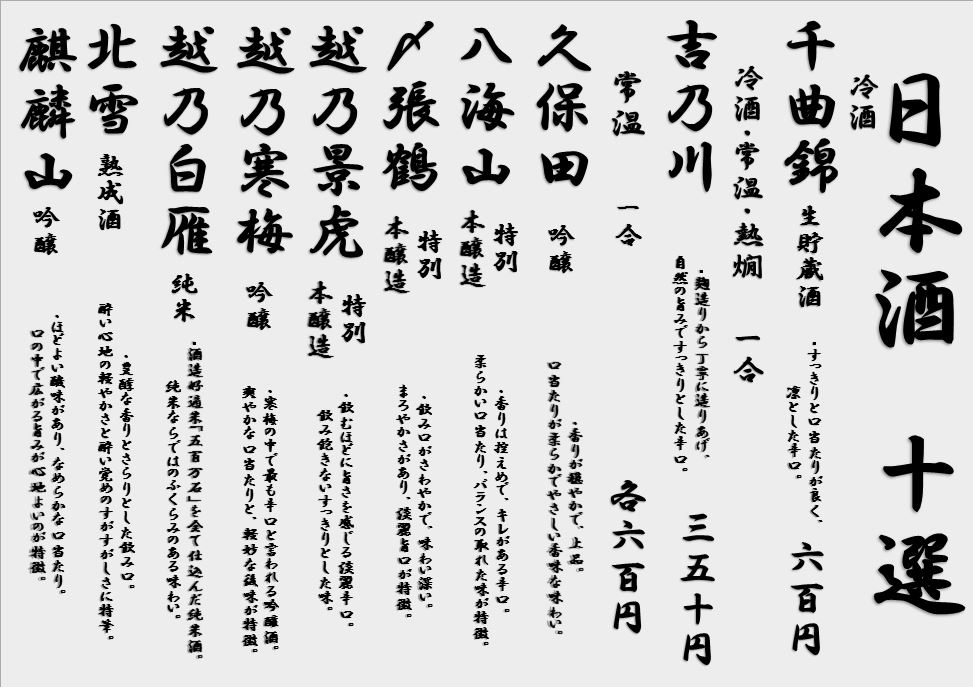 日本酒 十選
冷酒
千曲錦 生貯蔵酒
・すっきりと口当たりが良く、
凛とした辛口。
六百円
冷酒・常温・熱燗 一合
吉乃川
・麹造りから丁寧に造りあげ、
自然の旨みですっきりとした辛口。
三五十円
常温 一合
各六百円
久保田 吟醸
・香りが穏やかで、上品。
口当たりが柔らかでやさしい香味な味わい。
八海山 特別
本醸造
・香りは控えめで、キレがある辛口。
柔らかい口当たり、バランスの取れた味が特徴。
〆張鶴 特別
本醸造
・飲み口がさわやかで、味わい深い。
まろやかさがあり、淡麗旨口が特徴。
越乃景虎 特別
本醸造
・飲むほどに旨さを感じる淡麗辛口。
飲み飽きないすっきりとした味。
越乃寒梅 吟醸
・寒梅の中で最も辛口と言われる吟醸酒。
爽やかな口当たりと、軽妙な後味が特徴。
越乃白雁 純米
・酒造好適米「五百万石」を全て仕込んだ純米酒。
純米ならではのふくらみのある味わい。
北雪 熟成酒
・豊醇な香りとさらりとした飲み口。
酔い心地の軽やかさと酔い覚めのすがすがしさに特筆。
麒麟山 吟醸
・ほどよい酸味があり、なめらかな口当たり。
口の中で広がる旨みが心地よいのが特徴。